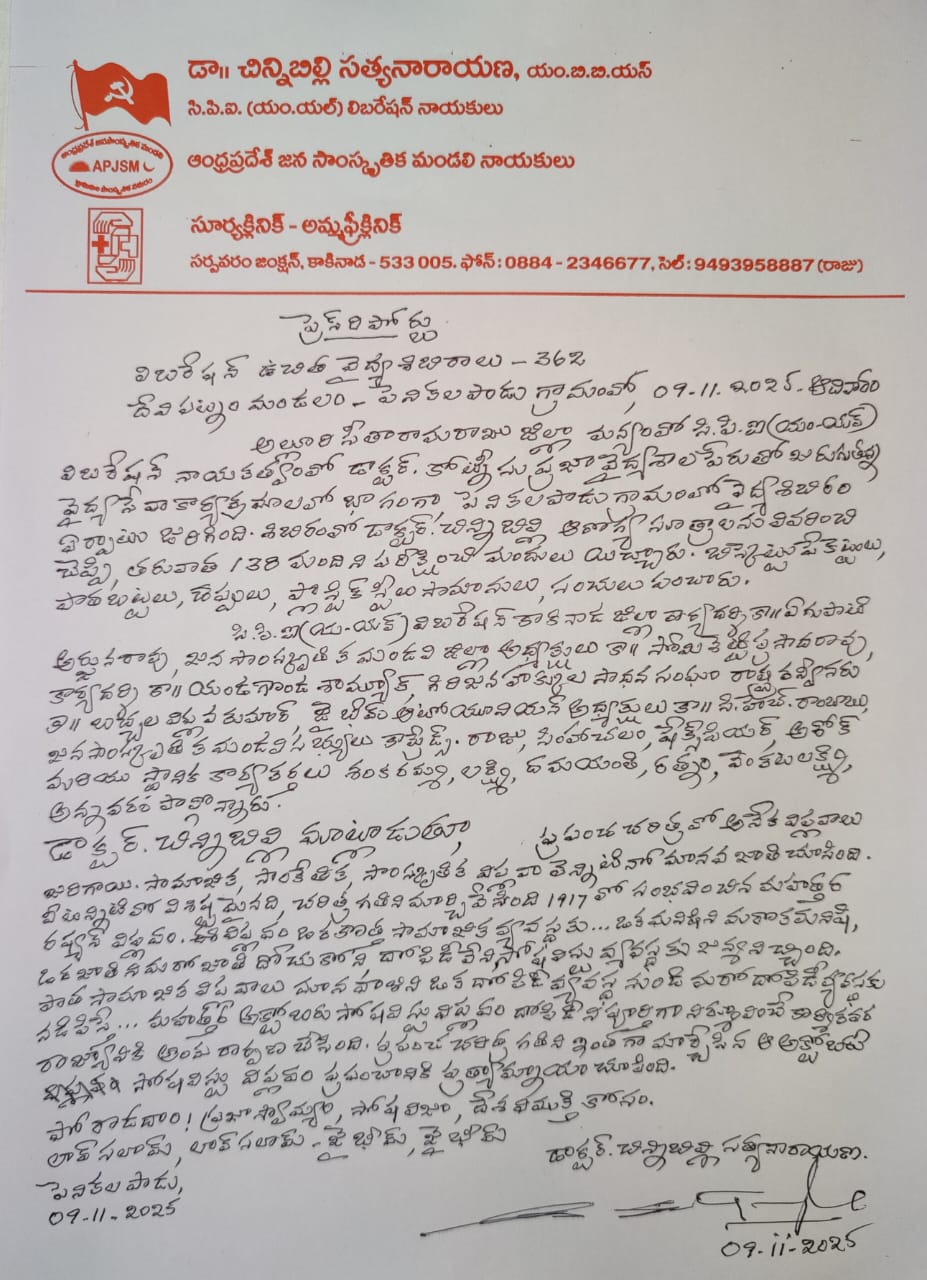 డా॥ చిన్నిబిల్లి సత్యనారాయణ, యం.బి.బి.యస్
సి.పి.ఐ. (యం.యల్) లిబరేషన్ నాయకులు
ఆంధ్రప్రదేశ్ జన సాంస్కృతిక మండలి
APJSM
ఆంధ్రప్రదేశ్ జన సాంస్కృతిక మండలి నాయకులు
సూర్యక్లినిక్ - అమ్మఫ్రీక్లినిక్
సర్పవరం జంక్షన్, కాకినాడ - 533 005. ఫోన్ : 0884 - 2346677, సెల్ : 9493958887 (రాజు)
ప్రెస్ రిపోర్టు
లిబరేషన్ ఉచిత వైద్య శిబిరాలు - 362
దేవిపట్నం మండలం - పెనికలపాడు గ్రామంలో, 09-11-2025-ఆదివారం
అల్లూరి సీతారామరాజు జిల్లా మన్యంలో సి.పి.ఐ(యం-యల్)
లిబరేషన్ నాయకత్వంలో డాక్టర్. కోట్నీసు ప్రజావైద్యశాల పేరుతో జరుగుతున్న
వైద్య సేవా కార్యక్రమాలలో భాగంగా పెనికలపాడు గ్రామంలో వైద్య శిబిరం
ఏర్పాటు జరిగింది. శిబిరంలో డాక్టర్. చిన్నిబిల్లి ఆరోగ్య సూత్రాలను వివరించి
చెప్పి, తరువాత 138 మందిని పరీక్షించి మందులు యిచ్చారు. బిస్కెట్టుపేకెట్టులు,
పాతబట్టలు, చెప్పులు, ప్లాస్టిక్ స్టీలు సామానులు, సంచులు పంచారు.
సి.పి.ఐ(యం-యల్) లిబరేషన్ కాకినాడ జిల్లా కార్యదర్శి కా॥ ఏగుపాటి
అర్జునరావు, జన సాంస్కృతిక మండలి జిల్లా అధ్యక్షులు కా॥ సోమిశెట్టి ప్రసాదరావు,
కార్యదర్శి కా॥ యండగొండ శామ్యూల్, గిరిజన హక్కుల సాధన సంఘం రాష్ట్ర కన్వీనరు
కా॥ బచ్చల విప్లవకుమార్, జై భీమ్ ఆటోయూనియన్ అధ్యక్షులు కా॥ సి.హెచ్. రాంబాబు,
జనసాంస్కృతిక మండలి సభ్యులు కామ్రేడ్స్. రాజు, సింహాచలం, షేక్స్‌పియర్, అశోక్
మరియు స్థానిక కార్యకర్తలు శంకరమ్మ, లక్ష్మి, దమయంతి, రత్నం, వెంకటలక్ష్మి,
అన్నవరం పాల్గొన్నారు.
డాక్టర్. చిన్నిబిల్లి మాట్లాడుతూ, ప్రపంచ చరిత్రలో అనేక విప్లవాలు
జరిగాయి. సామాజిక, సాంకేతిక, సాంస్కృతిక విప్లవాలెన్నిటినో మానవ జాతి చూసింది.
వీటన్నిటిలో విశిష్టమైనది, చరిత్ర గతిని మార్చివేసింది 1917 లో సంభవించిన మహత్తర
రష్యన్ విప్లవం. ఈ విప్లవం ఒక కొత్త సామాజిక వ్యవస్థకు... ఒక మనిషిని మరొక మనిషి,
ఒక జాతిని మరో జాతి దోచుకోని దోపిడీలేని సోషలిస్టు వ్యవస్థకు జన్మనిచ్చింది.
పాత సామాజిక విప్లవాలు మానవాళిని ఒక దోపిడీ వ్యవస్థ నుండి మరో దోపిడీ వ్యవస్థకు
నడిపిస్తే... మహత్తర అక్టోబరు సోషలిస్టు విప్లవం దోపిడీని పూర్తిగా నిర్మూలించే కార్మికవర్గ
రాజ్యానికి అంకురార్పణ చేసింది. ప్రపంచ చరిత్ర గతిని ఇంతగా మార్చేసిన ఆ అక్టోబరు
సోషలిస్టు విప్లవం ప్రపంచానికి ప్రత్యామ్నాయం చూపింది.
పోరాడదాం! ప్రజాస్వామ్యం, సోషలిజం, దేశ విముక్తి కోసం.
లాల్ సలామ్, లాల్ సలామ్ - జై భీమ్, జై భీమ్
డాక్టర్. చిన్నిబిల్లి సత్యనారాయణ.
పెనికలపాడు,
09-11-2025
09-11-2025